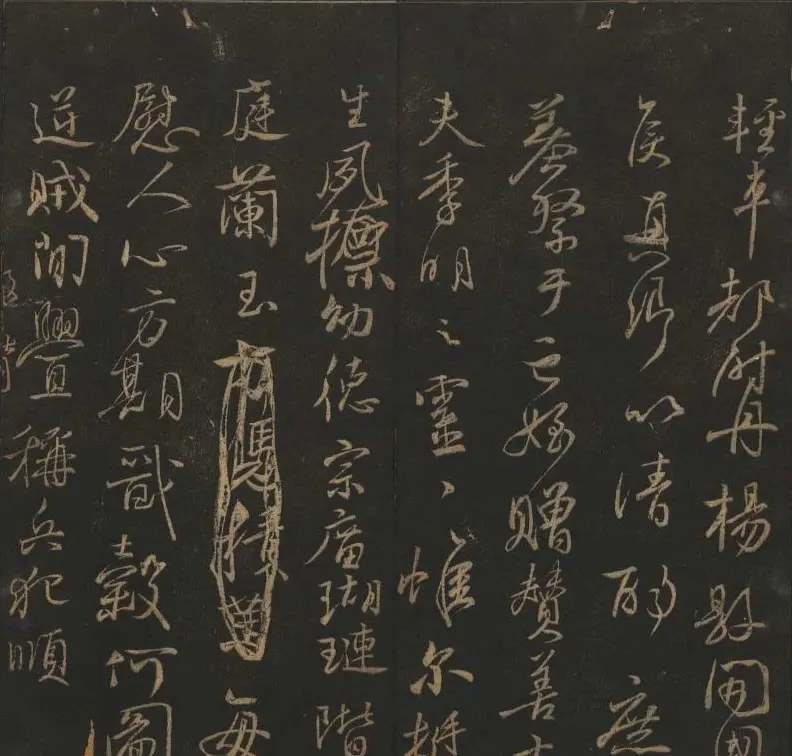 輕車都尉丹楊縣開國
侯真卿以清酌庶
羞祭于亡姪贈贊善大
夫季明之靈曰惟尔挺
生夙標幼德宗廟瑚璉階
庭蘭玉每
慰人心方期戩穀何圖
逆賊閒釁稱兵犯順